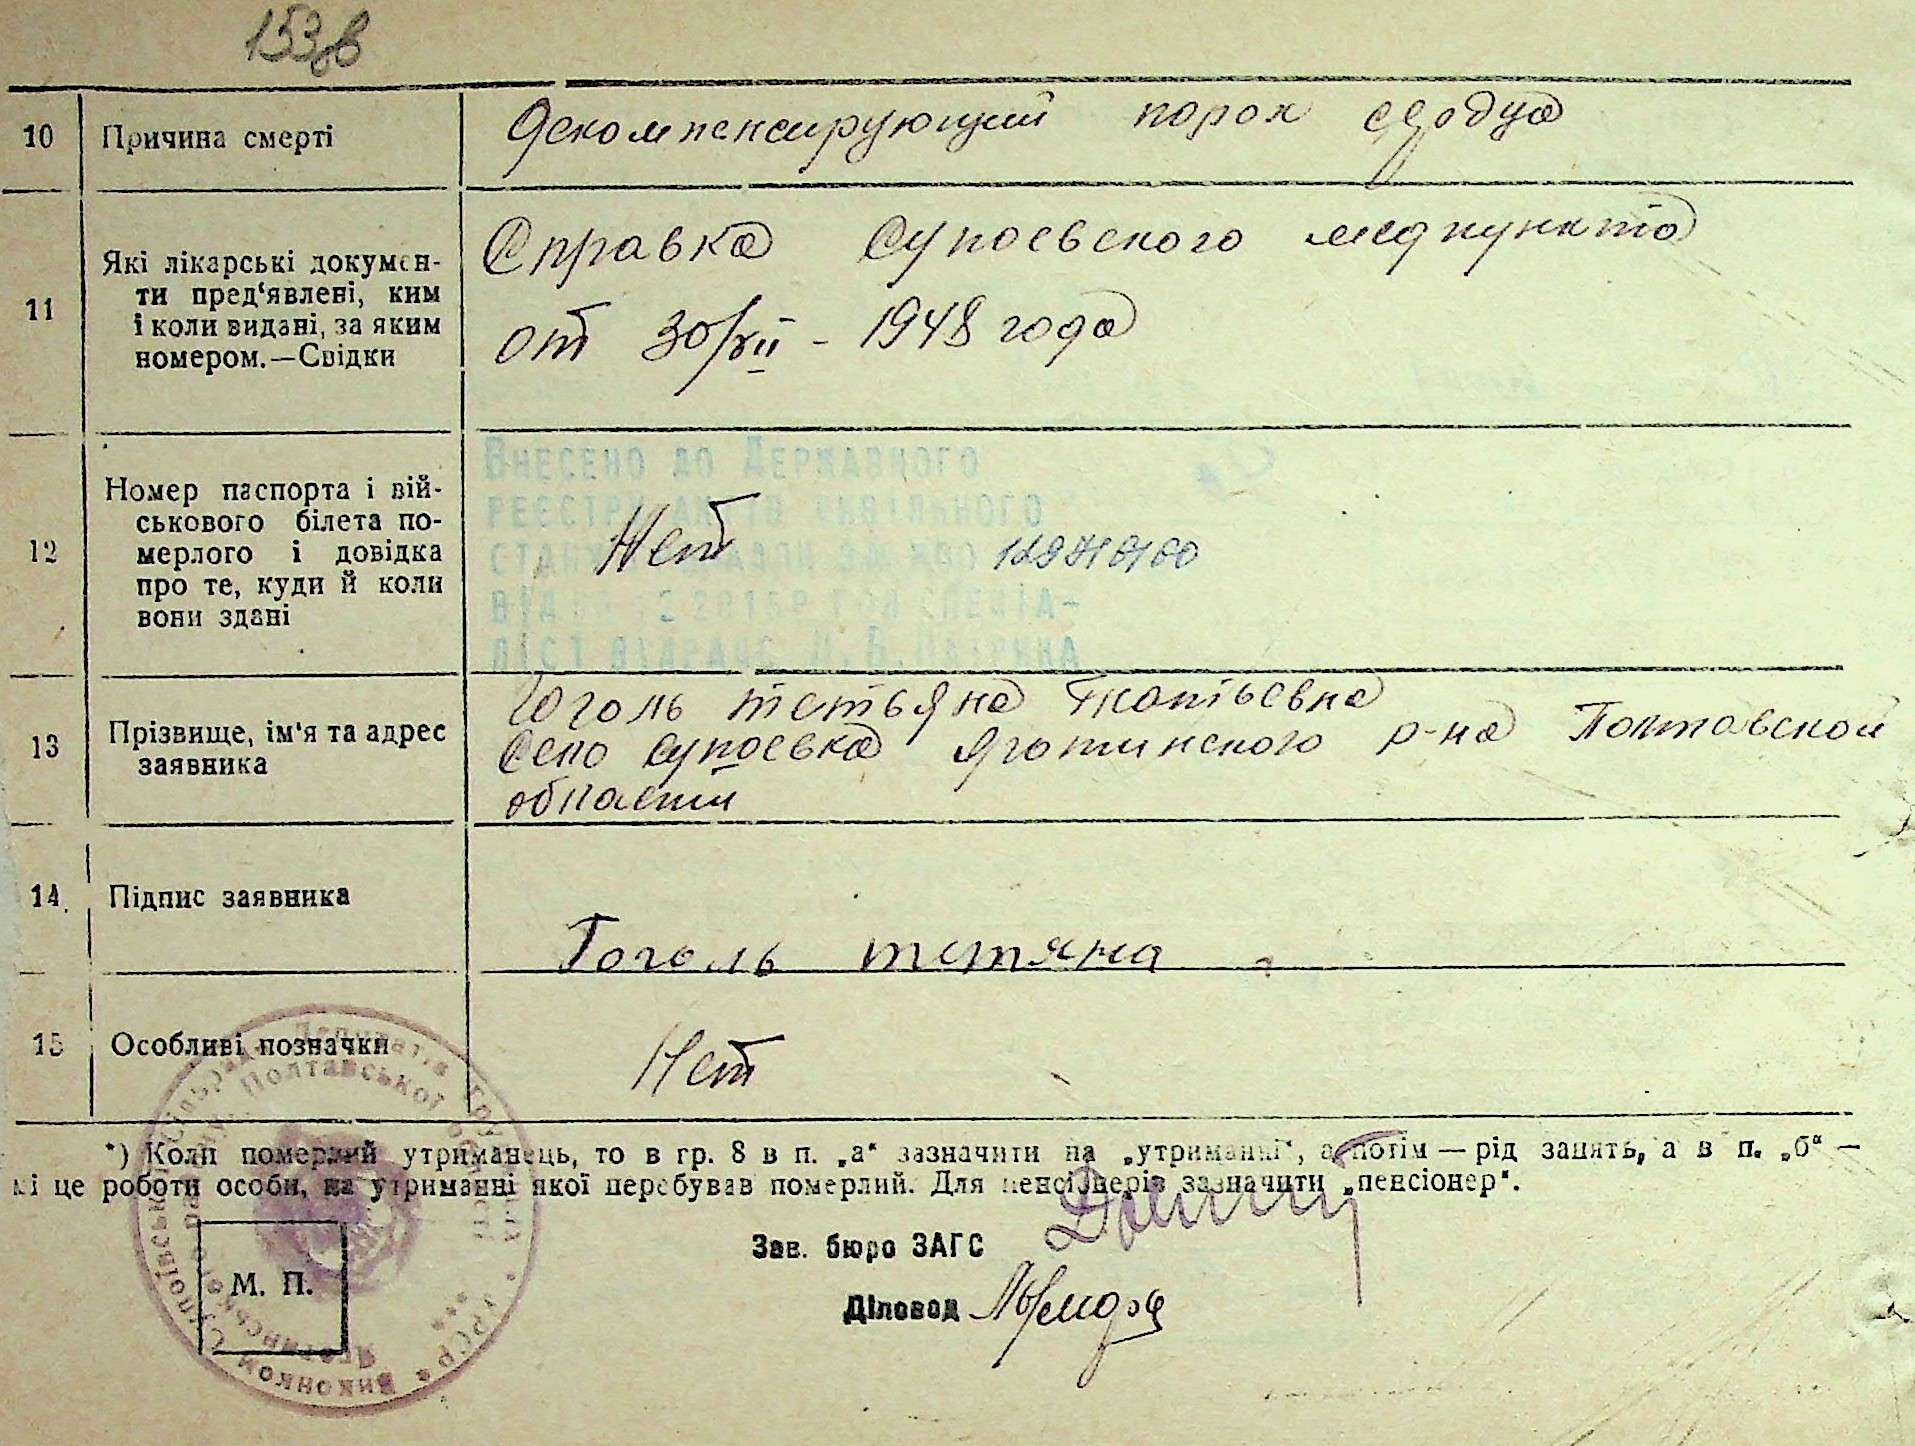 153 зв
10 Причина смерті Декомпенсирующий порок сердца
11 Які лікарські докумен-
ти пред‘явлені, ким
і коли видані, за яким
номером.—Свідки
Справка Супоевского медпункта
от 30/XII - 1948 года
12 Номер паспорта і вій-
ськового білета по-
мерлого і довідка
про те, куди й коли
вони здані
Нет
Внесено до Державного
реєстру актів цивільного
13 Прізвище, ім'я та адрес
заявника
Гоголь Тетьяна
Село Супоевка Яготинского р-на Полтавской
области
14. Підпис заявника
Гоголь тетяна
15 Особливі позначки Нет
*) Коли померлий утриманець, то в гр. 8 в п. „а“ зазначити на „утриманні“, а потім — рід занять, а в п. „б“ —
кі це роботи особи, на утриманні якої перебував померлий. Для пенсіонерів зазначити „пенсіонер“.
Зав. бюро ЗАГС
М. П.
Діловод
Виконком Супоївської
Яготинського Полтавської області
УРСР